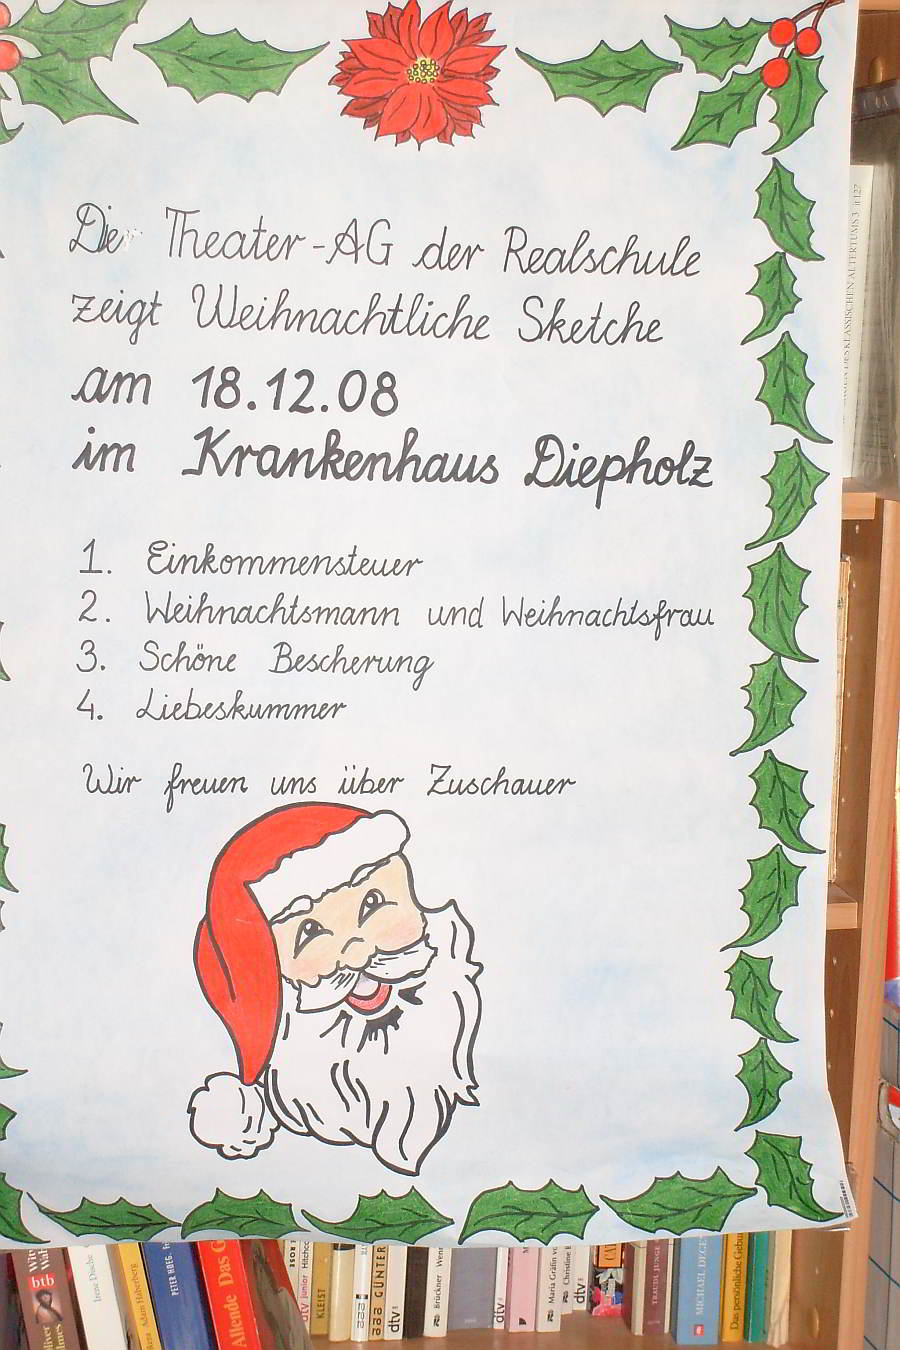 Die Theater-AG der Realschule
zeigt Weihnachtliche Sketche
am 18.12.08
im Krankenhaus Diepholz
1. Einkommensteuer
2. Weihnachtsmann und Weihnachtsfrau
3. Schöne Bescherung
4. Liebeskummer
Wir freuen uns über Zuschauer
btb
Irene Dische
PETER HØEG
Allende Das G
dtv junior
KLEIST
GÜNTER
dtv
Brückner
dtv
Maria Gräfin
Christine
dtv
MICHAEL DEGE
Das persönliche Gebu